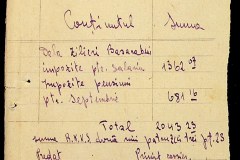 Conținutul Suma
Dela Zilieri Basarabeni
impozite ptr. salarii 1362 07
impozite pensiuni
ptr. Septembrie 681 16
Total 2043.23
suma H.K.V.S. două mii patruzeci trei pf. 23
Predat Primit casier,